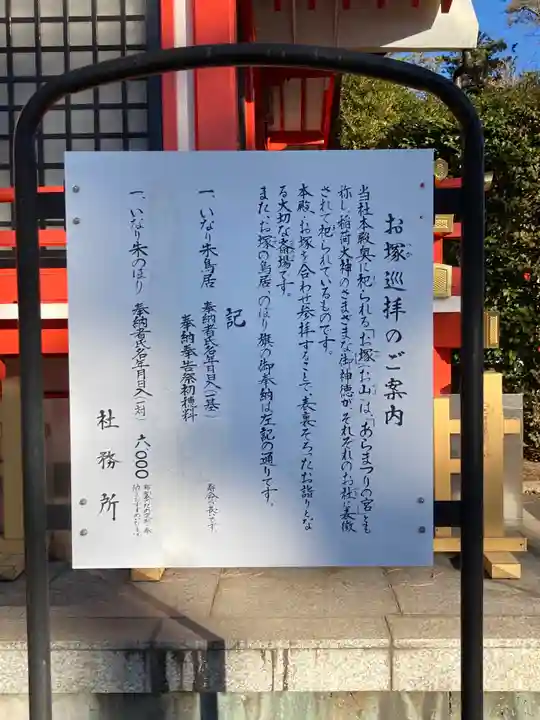 お塚巡拝のご案内
当社本殿奥に祀られる「お塚（お山）」は、「あらまつりの宮」とも
称し稲荷大神のさまざまな御神徳がそれぞれのお社に表徴
されて祀られているものです。
本殿、お塚を合わせ参拝することで、表裏そろったお詣りとな
る大切な斎場です。
また、お塚の鳥居、のぼり旗の御奉納は左記の通りです。
記
一、いなり朱鳥居 奉納者氏名年月日入（一基）
奉納奉告祭初穂料
一、いなり朱のぼり 奉納者氏名年月日入（一対） 六、〇〇〇
社務所